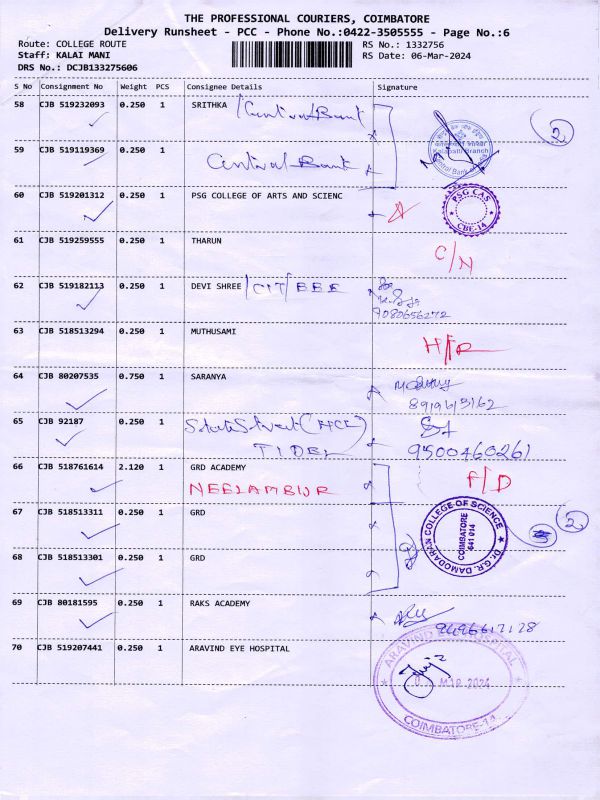 THE PROFESSIONAL COURIERS, COIMBATORE
Delivery Runsheet - PCC - Phone No.:0422-3505555 - Page No.:6
Route: COLLEGE ROUTE RS No.: 1332756
Staff: KALAI MANI RS Date: 06-Mar-2024
DRS No.: DCJB133275606
S No Consignment No Weight PCS Consignee Details Signature
58 CJB 519232093 0.250 1 SRITHKA / Central Bank
2
Kalapatti Branch
Central Bank of
59 CJB 519119369 0.250 1 Central Bank
60 CJB 519201312 0.250 1 PSG COLLEGE OF ARTS AND SCIENC
PSG CAS
CBE-14
61 CJB 519259555 0.250 1 THARUN C/N
62 CJB 519182113 0.250 1 DEVI SHREE / CIT / EEE
9080656272
63 CJB 518513294 0.250 1 MUTHUSAMI
64 CJB 80207535 0.750 1 SARANYA
8919613162
65 CJB 92187 0.250 1 State Street (HCL)
TIDEL 9500460261
66 CJB 518761614 2.120 1 GRD ACADEMY F/D
NEELAMBUR
67 CJB 518513311 0.250 1 GRD
Dr. G.R. DAMODARAN COLLEGE OF SCIENCE
COIMBATORE
641 014
2
68 CJB 518513301 0.250 1 GRD
69 CJB 80181595 0.250 1 RAKS ACADEMY
70 CJB 519207441 0.250 1 ARAVIND EYE HOSPITAL
ARAVIND EYE HOSPITAL
MAR 2024
COIMBATORE-14